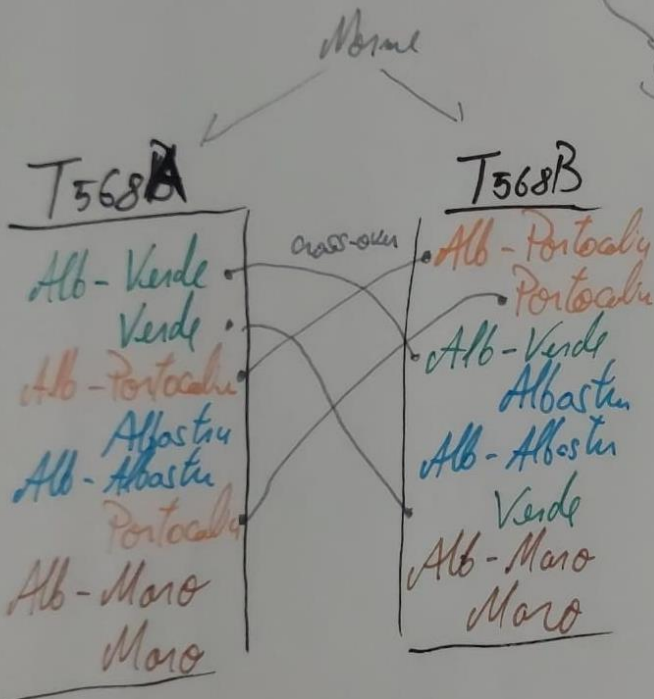 Norme
T568A
Alb-Verde
Verde
Alb-Portocaliu
Albastru
Alb-Albastru
Portocaliu
Alb-Maro
Maro
cross-over
T568B
Alb-Portocaliu
Portocaliu
Alb-Verde
Albastru
Alb-Albastru
Verde
Alb-Maro
Maro